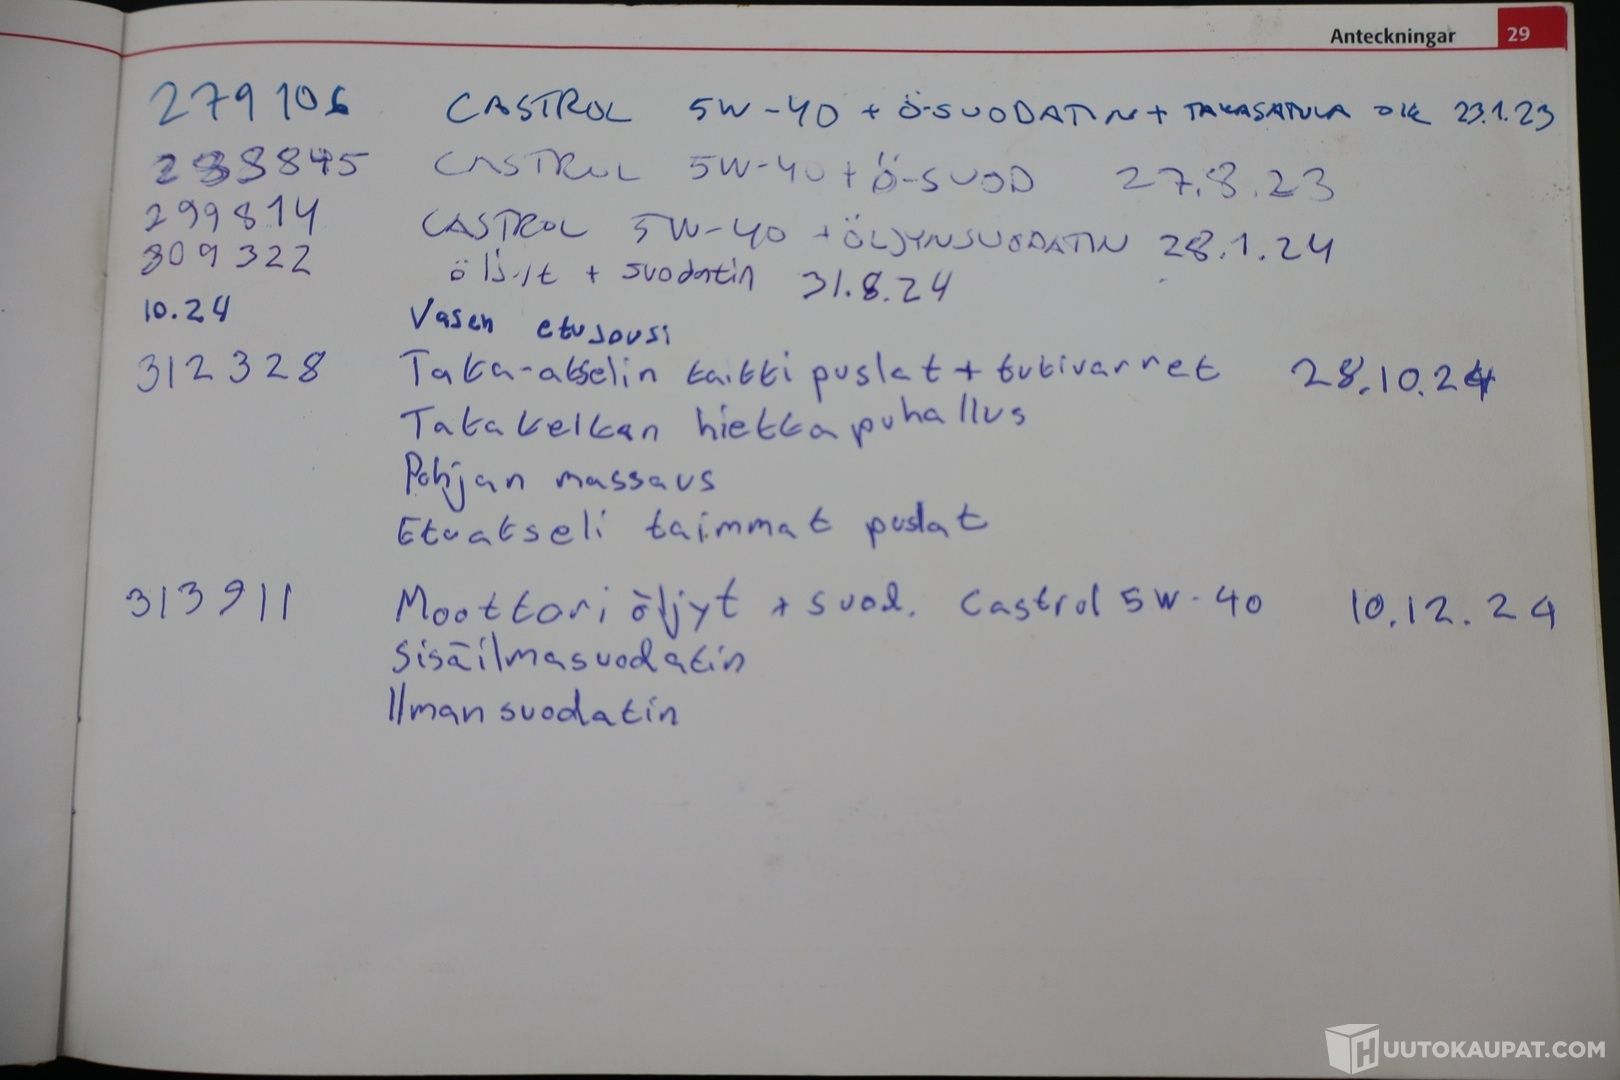 Anteckningar 29
279106 CASTROL 5W-40 + Ö-SUODATIN + TAKASATULA 23.1.23
CASTROL 5W-40 + Ö-SUOD 27.8.23
299814 CASTROL 5W-40 + ÖLJYNSUODATIN 28.1.24
309322 öljyt + suodatin 31.8.24
10.24 Vasen etujousi
312328 Taka-akselin kaikki puslat + tukivarret 28.10.24
Takakelkan hiekkapuhallus
Pohjan massaus
Etuakseli taimmat puslat
313911 Moottori öljyt + suod. Castrol 5W-40 10.12.24
Sisäilmasuodatin
Ilmansuodatin
HUUTOKAUPAT.COM